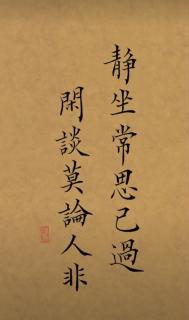 靜坐常思己過
閑談莫論人非